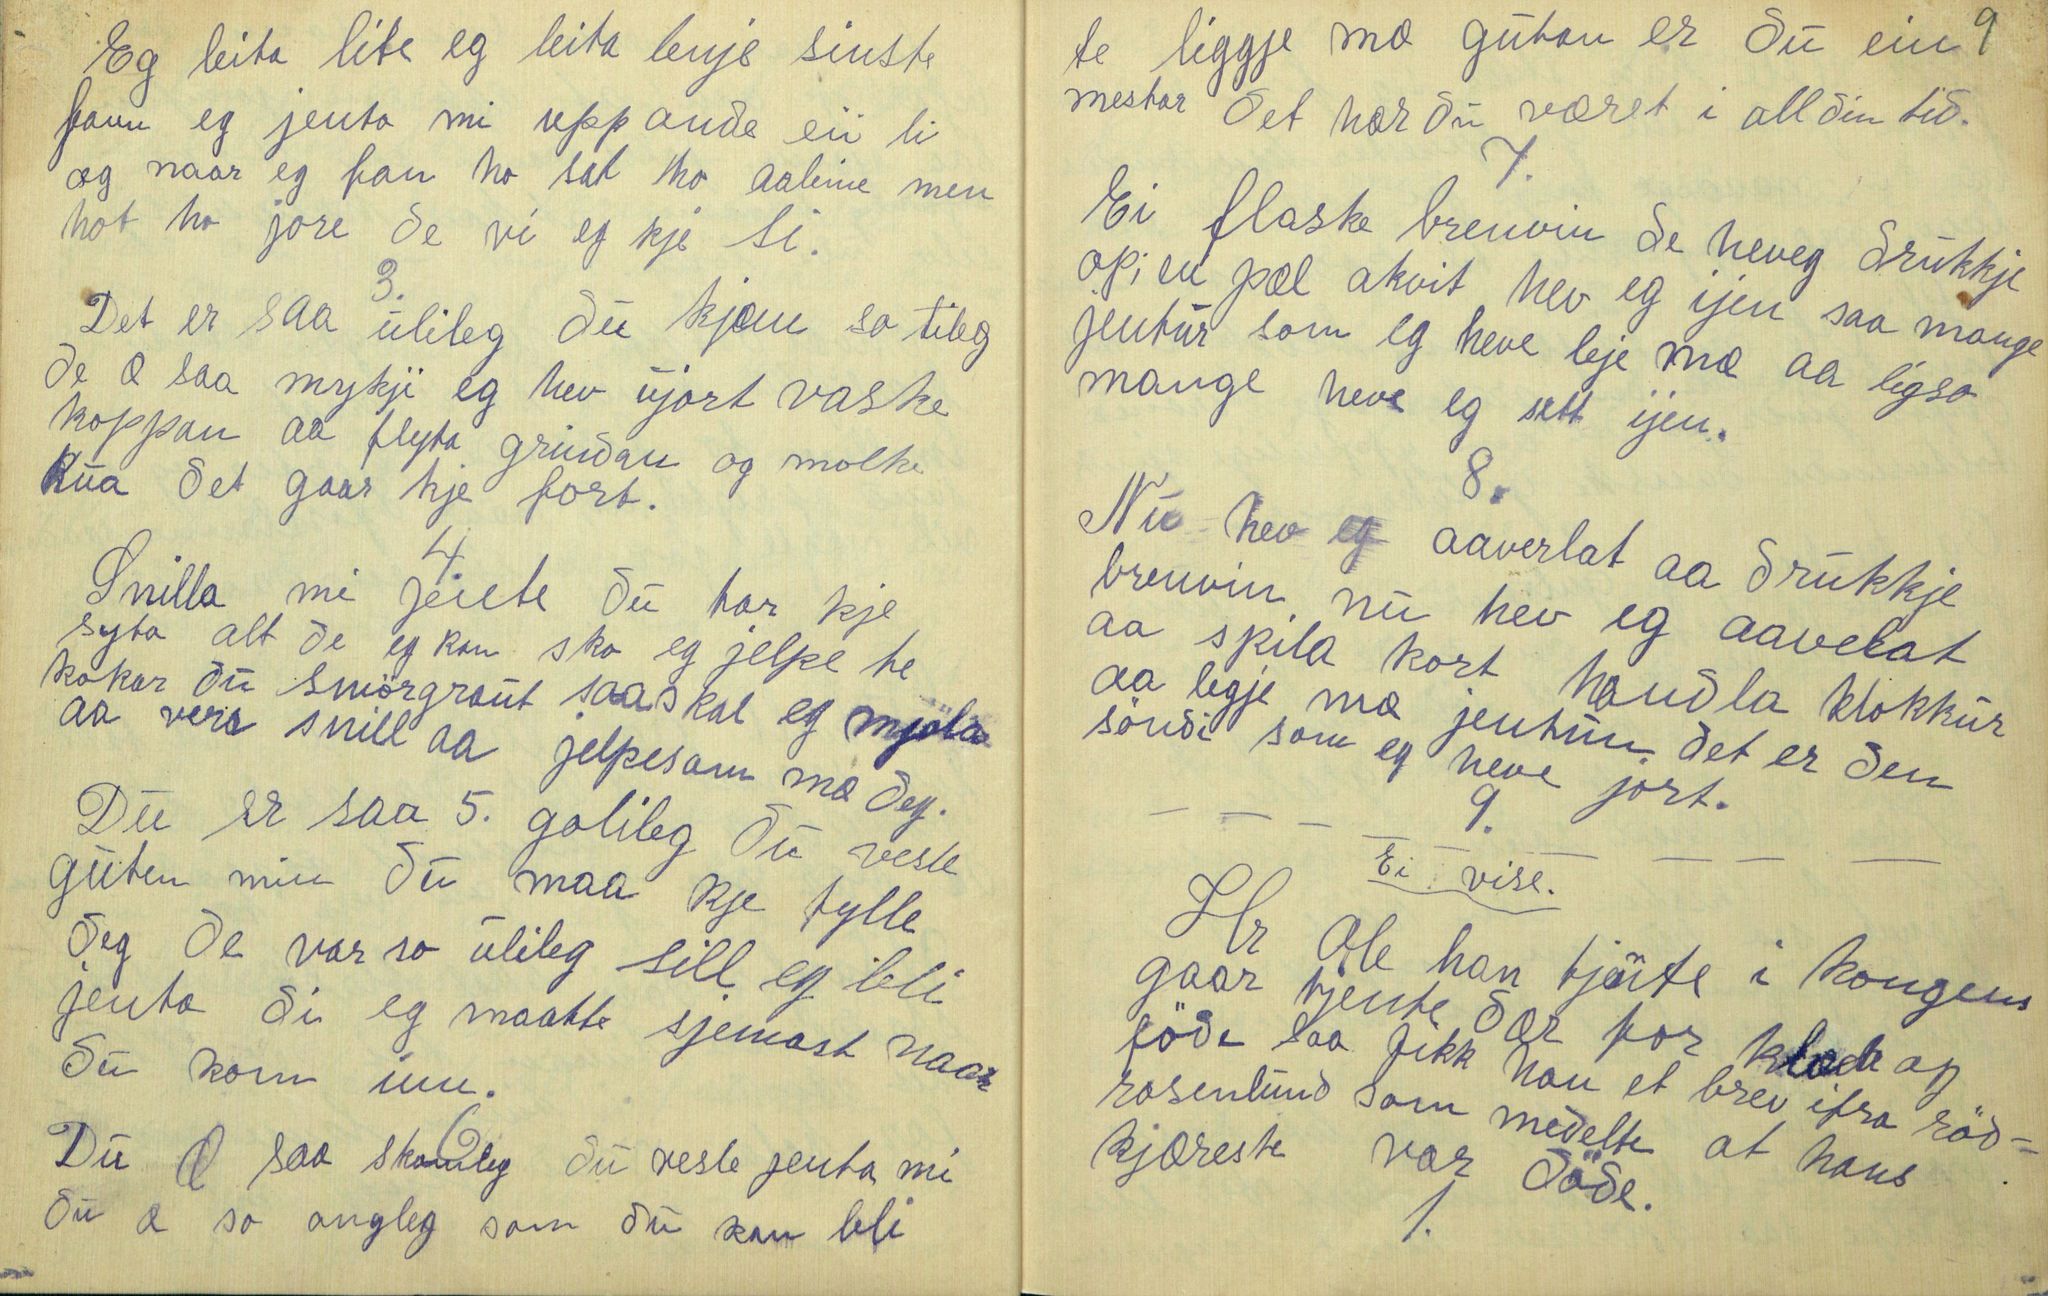 Eg leita lite eg leita lenje sinste
fann eg jenta mi uppunde eii li
og naar eg fan ho sat ho aaleine men
hot ho jore de vi eg kje si.
3.
Det er saa ulileg du kjem so tileg
de æ saa mykji eg hev ujort vaske
koppan aa flyta grindan og molke
kua det gaar kje fort.
4
Snilla mi jente du tar kje
syta alt de eg kan ska eg jelpe te
kokar du smörgraut saa skal eg mjola
aa vera snill aa jelpesam mæ deg.
Du er saa 5. galileg du vesle
guten min du maa kje tylle
deg de var so ulileg sill eg bli
jenta di eg maatte sjemast naar
du kom inn.
6
Du æ saa skamleg du vesle jenta mi
du æ so angleg som du kan bli
te liggje mæ gutan er du ein 9
mestar det har du været i all din tid.
7.
Ei flaske brenvin de heveg drukkje
op; en pæl akvit hev eg ijen saa mange
jentur som eg heve leje mæ aa ligso
mange heve eg sett ijen.
8.
Nu hev eg aaverlat aa drukkje
brenvin nu hev eg aavelat
aa spila kort handla klokkur
aa legje mæ jentun det er den
söndi som eg heve jort.
9.
Ei vise.
Hr Ole han tjente i kongens
gaar tjente dær for klæde og
föde saa fikk han et brev ifra röd=
rosenlund som medelte at hans
kjæreste var döde.
1.